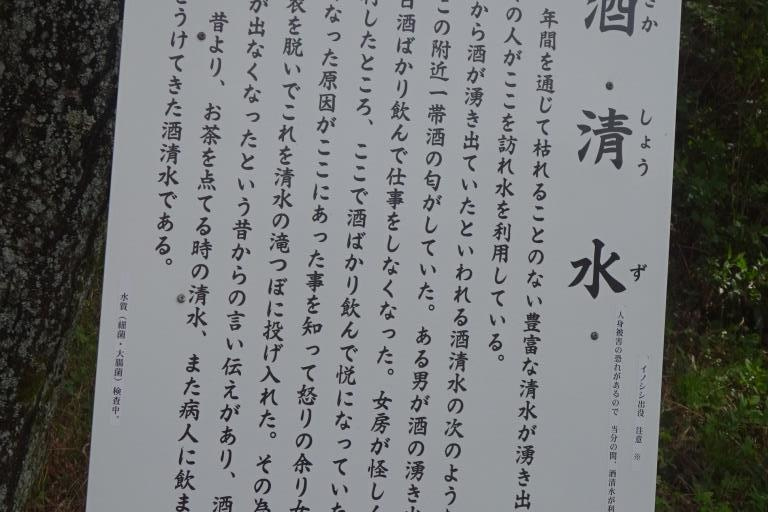 酒清水
さかしょうず
イノシシ出没 注意 ※
人身被害の恐れがあるので 当分の間、酒清水が利
年間を通じて枯れることのない豊富な清水が湧き出
の人がここを訪れ水を利用している。
から酒が湧き出ていたといわれる酒清水の次のよう
この附近一帯酒の匂がしていた。ある男が酒の湧き出
日酒ばかり飲んで仕事をしなくなった。女房が怪しく
行したところ、ここで酒ばかり飲んで悦になっていた
なった原因がここにあった事を知って怒りの余り女
衣を脱いでこれを清水の滝つぼに投げ入れた。その為
が出なくなったという昔からの言い伝えがあり、酒
昔より、お茶を点てる時の清水、また病人に飲ま
をうけてきた酒清水である。
水質(細菌・大腸菌)検査中。